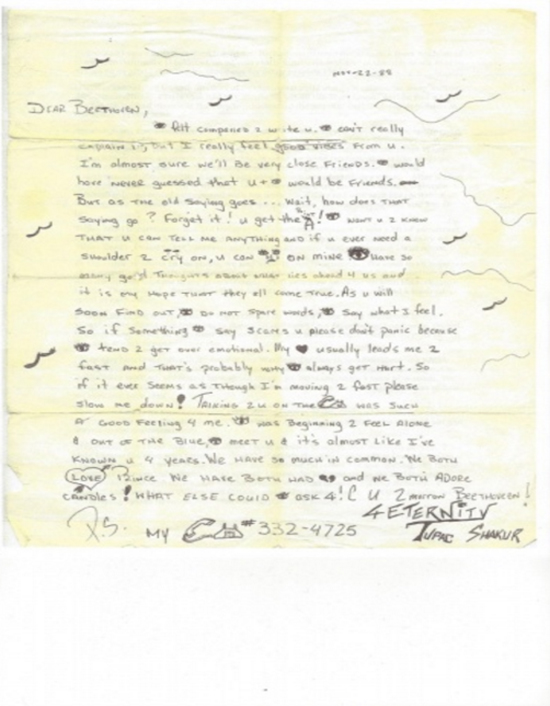 Nov-22-88
Dear Beethoven,
felt compelled 2 write u. can't really
explain it, but I really feel good vibes from u.
I'm almost sure we'll be very close friends. would
have never guessed that u + would be friends.
But as the old saying goes... Wait, how does that
saying go? Forget it! u get the! want u 2 know
that u can tell me anything and if u ever need a
shoulder 2 cry on, u can on mine have so
many good thoughts about what lies ahead 4 us and
it is my hope that they all come true. As u will
soon find out, do not spare words, say what I feel.
So if something say scares u please don't panic because
tend 2 get over emotional. My usually leads me 2
fast and that's probably why always get hurt. So
if it ever seems as though I'm moving 2 fast please
slow me down! Talking 2 u on the was such
a good feeling 4 me. was beginning 2 feel alone
& out of the blue, meet u & it's almost like I've
known u 4 years. We have so much in common. We both
Love Prince We have both had and we both adore
candles! What else could ask 4! C U 2morrow Beethoven!
4 Eternity
P.S. My # 332-4725 Tupac Shakur